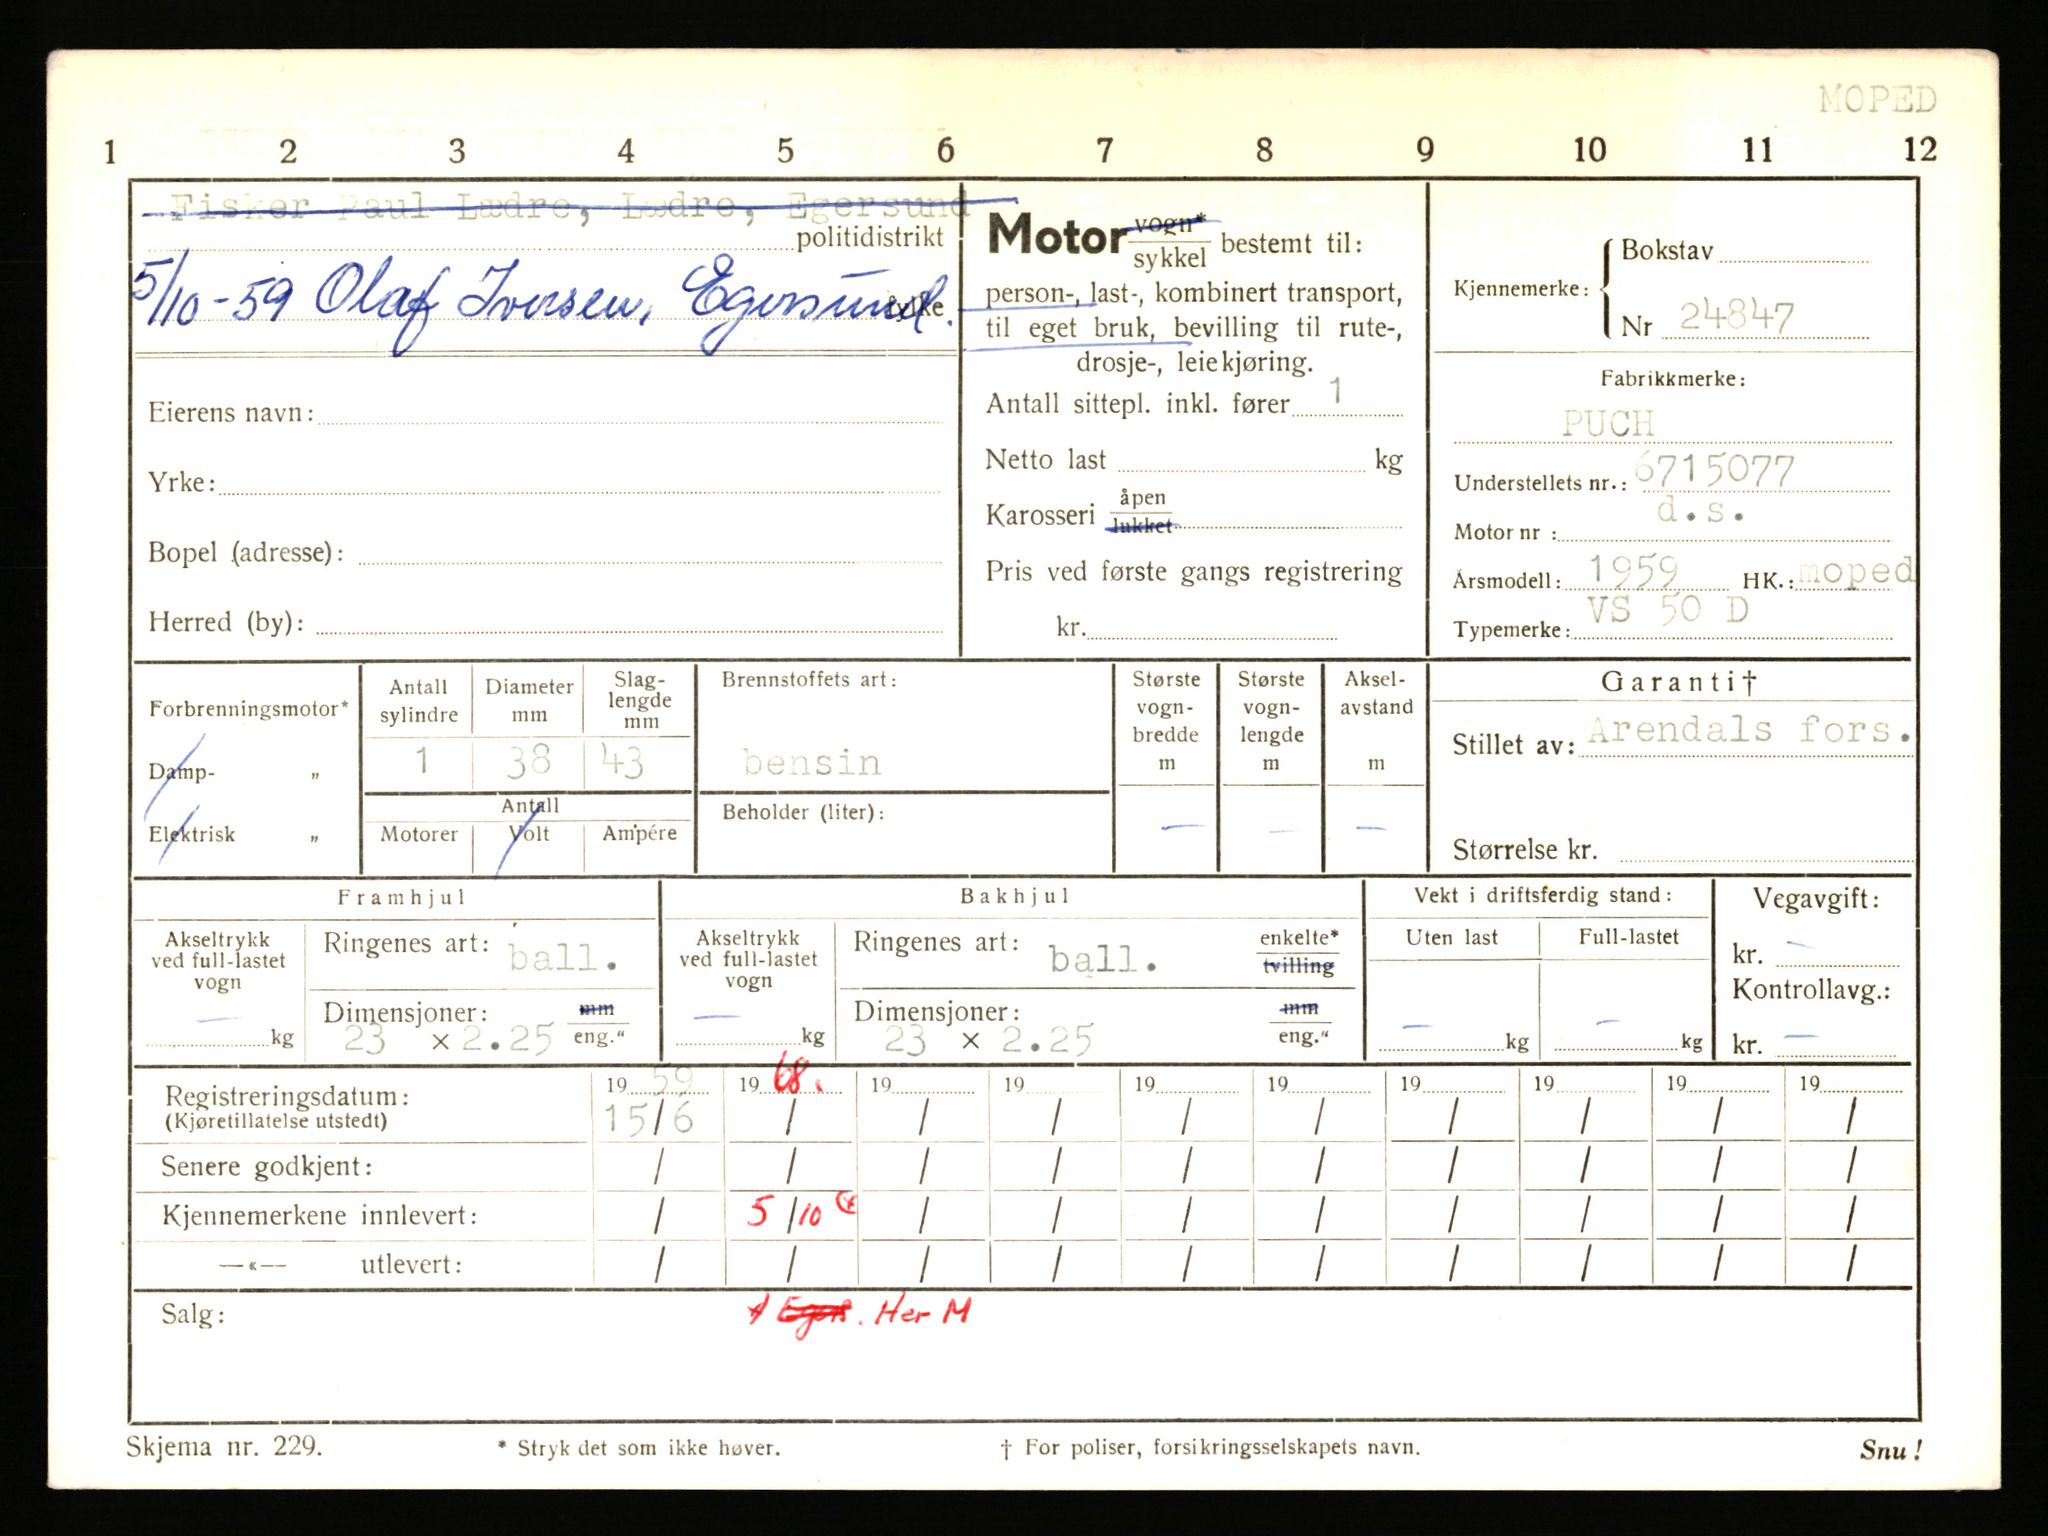 MOPED
1 2 3 4 5 6 7 8 9 10 11 12
Fisker Paul Lædre, Lædre, Egersund
politidistrikt
5/10-59 Olaf Iversen, Egersund.
fylke
Eierens navn:
Yrke:
Bopel (adresse):
Herred (by):
Motor vogn*
sykkel bestemt til:
person-, last-, kombinert transport,
til eget bruk, bevilling til rute-,
drosje-, leiekjøring.
Antall sittepl. inkl. fører 1
Netto last kg
Karosseri åpen
lukket
Pris ved første gangs registrering
kr.
Kjennemerke: Bokstav
Nr 24847
Fabrikkmerke:
PUCH
Understellets nr.: 6715077
Motor nr : d.s.
Årsmodell: 1959 HK.: moped
Typemerke: VS 50 D
Forbrenningsmotor*
Damp- „
Elektrisk „
Antall
sylindre
1
Diameter
mm
38
Slag-
lengde
mm
43
Antall
Motorer Volt Ampére
Brennstoffets art:
bensin
Beholder (liter):
Største
vogn-
bredde
m
—
Største
vogn-
lengde
m
—
Aksel-
avstand
m
—
Garanti†
Stillet av: Arendals fors.
Størrelse kr.
Framhjul
Akseltrykk
ved full-lastet
vogn
— kg
Ringenes art: ball.
Dimensjoner: mm
23 × 2.25 eng."
Bakhjul
Akseltrykk
ved full-lastet
vogn
— kg
Ringenes art: ball. enkelte*
tvilling
Dimensjoner: mm
23 × 2.25 eng."
Vekt i driftsferdig stand:
Uten last Full-lastet
— kg — kg
Vegavgift:
kr. —
Kontrollavg.:
kr. —
Registreringsdatum: 19 59 19 68. 19 19 19 19 19 19 19 19
(Kjøretillatelse utstedt) 15/6 / / / / / / / / /
Senere godkjent: / / / / / / / / / /
Kjennemerkene innlevert: / 5/10 / / / / / / / /
—«— utlevert: / / / / / / / / / /
Salg:
Egers. Her M
Skjema nr. 229. * Stryk det som ikke høver. † For poliser, forsikringsselskapets navn. Snu!